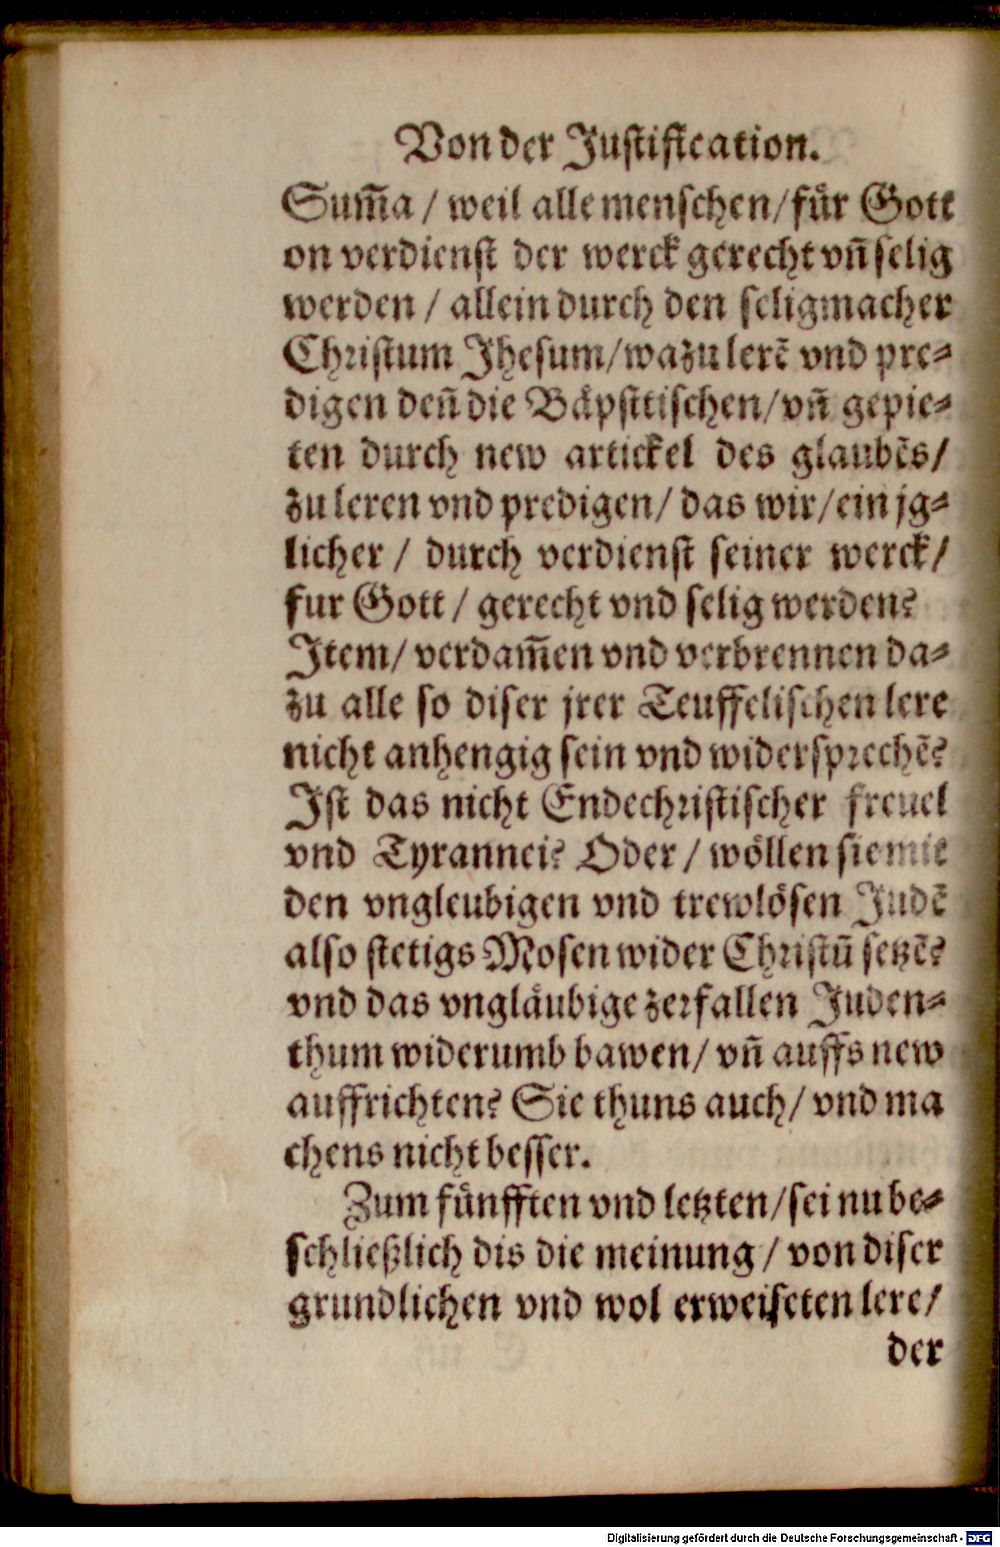 Von der Justification.
Sum̃a / weil alle menschen / fuͤr Gott
on verdienst der werck gerecht vñ selig
werden / allein durch den seligmacher
Christum Jhesum / wazu lerẽ vnd pre⸗
digen deñ die Baͤpsttischen / vñ gepie⸗
ten durch new artickel des glaubẽs /
zu leren vnd predigen / das wir / ein jg⸗
licher / durch verdienst seiner werck /
fur Gott / gerecht vnd selig werden?
Jtem / verdam̃en vnd verbrennen da⸗
zu alle so diser jrer Teuffelischen lere
nicht anhengig sein vnd widersprechẽ?
Jst das nicht Endechristischer freuel
vnd Tyrannei? Oder / woͤllen sie mit
den vngleubigen vnd trewloͤsen Judẽ
also stetigs Mosen wider Christũ setzẽ?
vnd das vnglaͤubige zerfallen Juden⸗
thum widerumb bawen / vñ auffs new
auffrichten? Sie thuns auch / vnd ma
chens nicht besser.
Zum fuͤnfften vnd letzten / sei nu be⸗
schließlich dis die meinung / von diser
grundlichen vnd wol erweiseten lere /
der
Digitalisierung gefördert durch die Deutsche Forschungsgemeinschaft - DFG